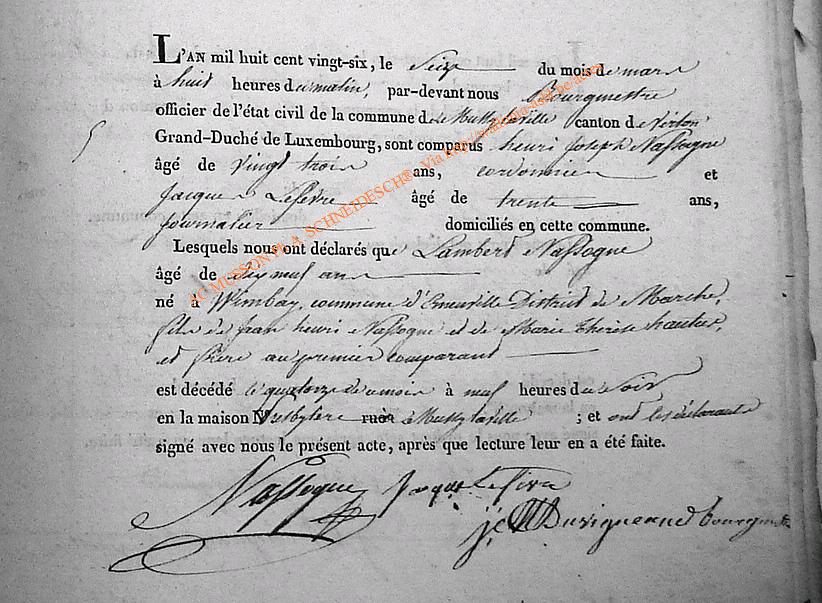 L'AN mil huit cent vingt-six, le Seize du mois de mars
à huit heures du matin, par-devant nous Bourgmestre
officier de l'état civil de la commune de Mussy la ville canton de Virton
Grand-Duché de Luxembourg, sont comparus henri joseph Nassogne
âgé de vingt trois ans, cordonnier et
jacques Lefevre âgé de trente ans,
journalier domiciliés en cette commune.
Lesquels nous ont déclarés que Lambert Nassogne
âgé de dix neuf ans
né à Wimbay, commune d' District de Marche,
fils de jean henri Nassogne et de Marie Therèse hautier,
et frere au premier comparant
est décédé le quatorze de ce mois à neuf heures du Soir
en la maison rue à Mussy la ville ; et ont les déclarants
signé avec nous le présent acte, après que lecture leur en a été faite.
Nassogne Lefevre
Duvigneaud bourgmestre
AC MUSSON Ph A. SCHNEIDESCH© Via http://